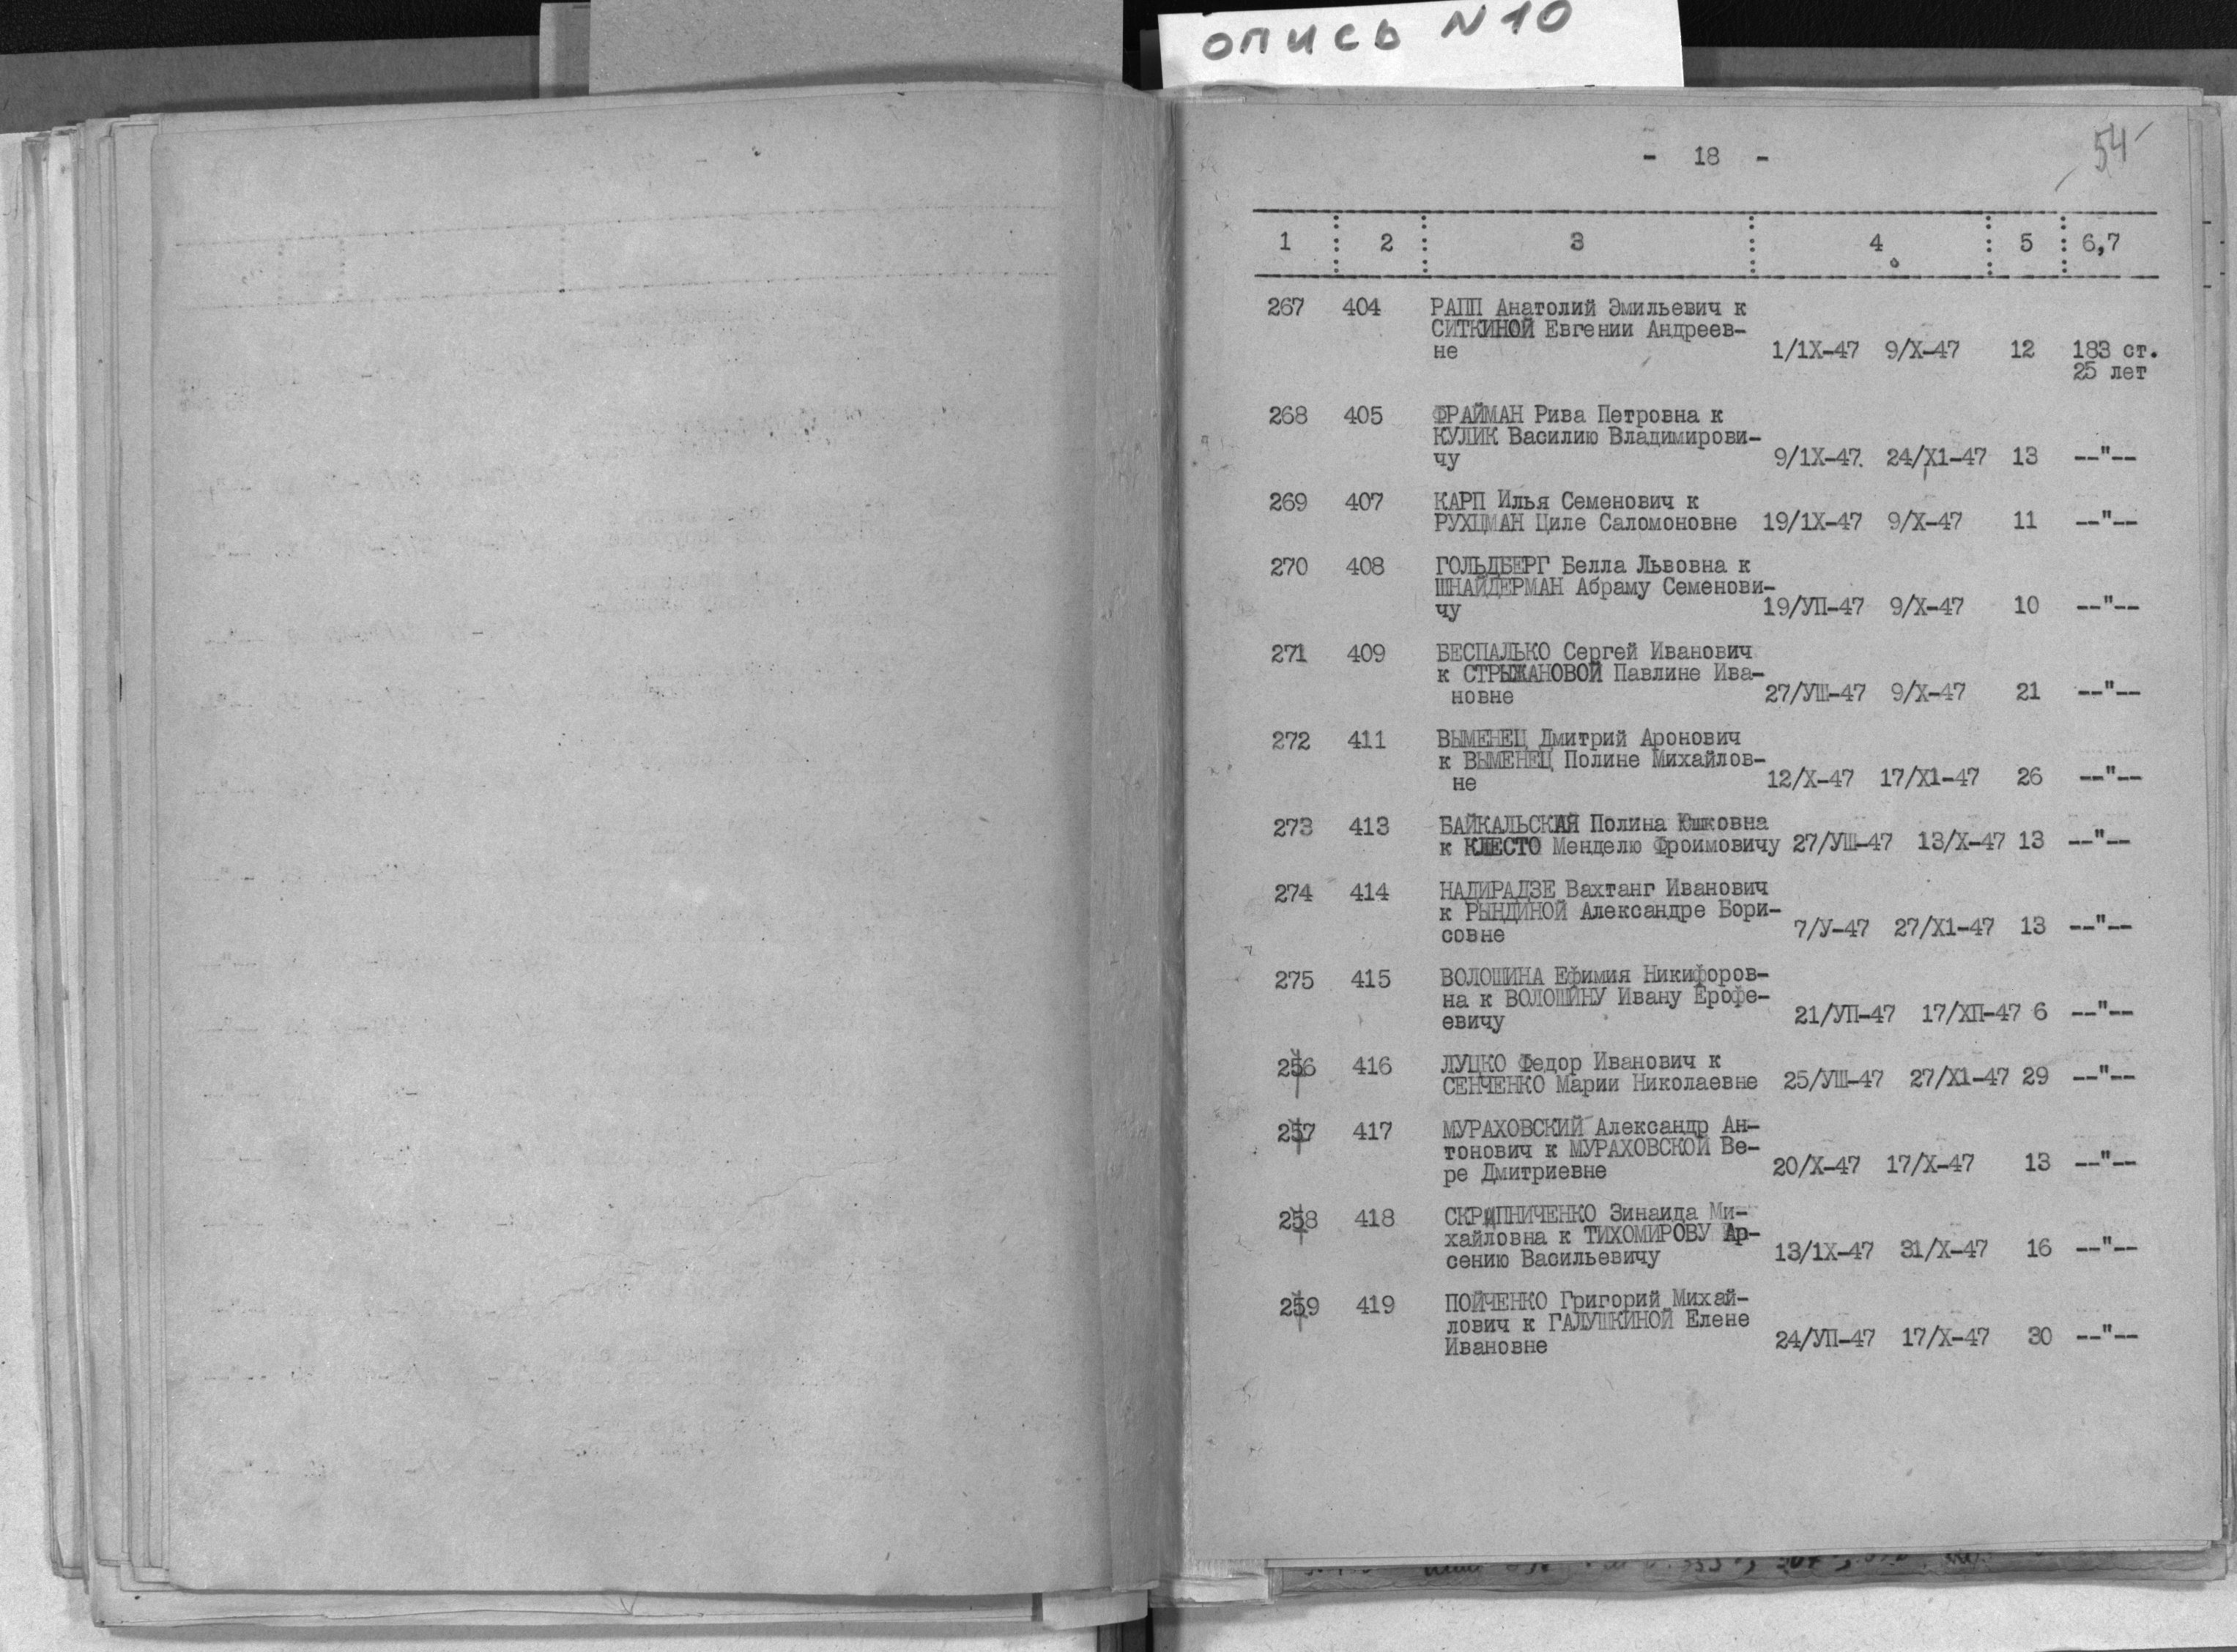 опись N 10
54
- 18 -
1 : 2 : 3 : 4 : 5 : 6,7
267 404 РАПП Анатолий Эмильевич к
СИТКИНОЙ Евгении Андреев-
не 1/1Х-47 9/Х-47 12 183 ст.
25 лет
268 405 ФРАЙМАН Рива Петровна к
КУЛИК Василию Владимирови-
чу 9/1Х-47. 24/Х1-47 13 --"--
269 407 КАРП Илья Семенович к
РУХЦМАН Циле Саломоновне 19/1Х-47 9/Х-47 11 --"--
270 408 ГОЛЬДБЕРГ Белла Львовна к
ШНАЙДЕРМАН Абраму Семенови-
чу 19/УП-47 9/Х-47 10 --"--
271 409 БЕСПАЛЬКО Сергей Иванович
к СТРЫЖАНОВОЙ Павлине Ива-
новне 27/УШ-47 9/Х-47 21 --"--
272 411 ВЫМЕНЕЦ Дмитрий Аронович
к ВЫМЕНЕЦ Полине Михайлов-
не 12/Х-47 17/Х1-47 26 --"--
273 413 БАЙКАЛЬСКАЯ Полина Юшковна
к КЛЕСТО Менделю Фроимовичу 27/УШ-47 13/Х-47 13 --"--
274 414 НАДИРАДЗЕ Вахтанг Иванович
к РЫНДИНОЙ Александре Бори-
совне 7/У-47 27/Х1-47 13 --"--
275 415 ВОЛОШИНА Ефимия Никифоров-
на к ВОЛОШИНУ Ивану Ерофе-
евичу 21/УП-47 17/ХП-47 6 --"--
256 416 ЛУЦКО Федор Иванович к
СЕНЧЕНКО Марии Николаевне 25/УШ-47 27/Х1-47 29 --"--
257 417 МУРАХОВСКИЙ Александр Ан-
тонович к МУРАХОВСКОЙ Ве-
ре Дмитриевне 20/Х-47 17/Х-47 13 --"--
258 418 СКРИПНИЧЕНКО Зинаида Ми-
хайловна к ТИХОМИРОВУ Ар-
сению Васильевичу 13/1Х-47 31/Х-47 16 --"--
259 419 ПОЙЧЕНКО Григорий Михай-
лович к ГАЛУШКИНОЙ Елене
Ивановне 24/УП-47 17/Х-47 30 --"--